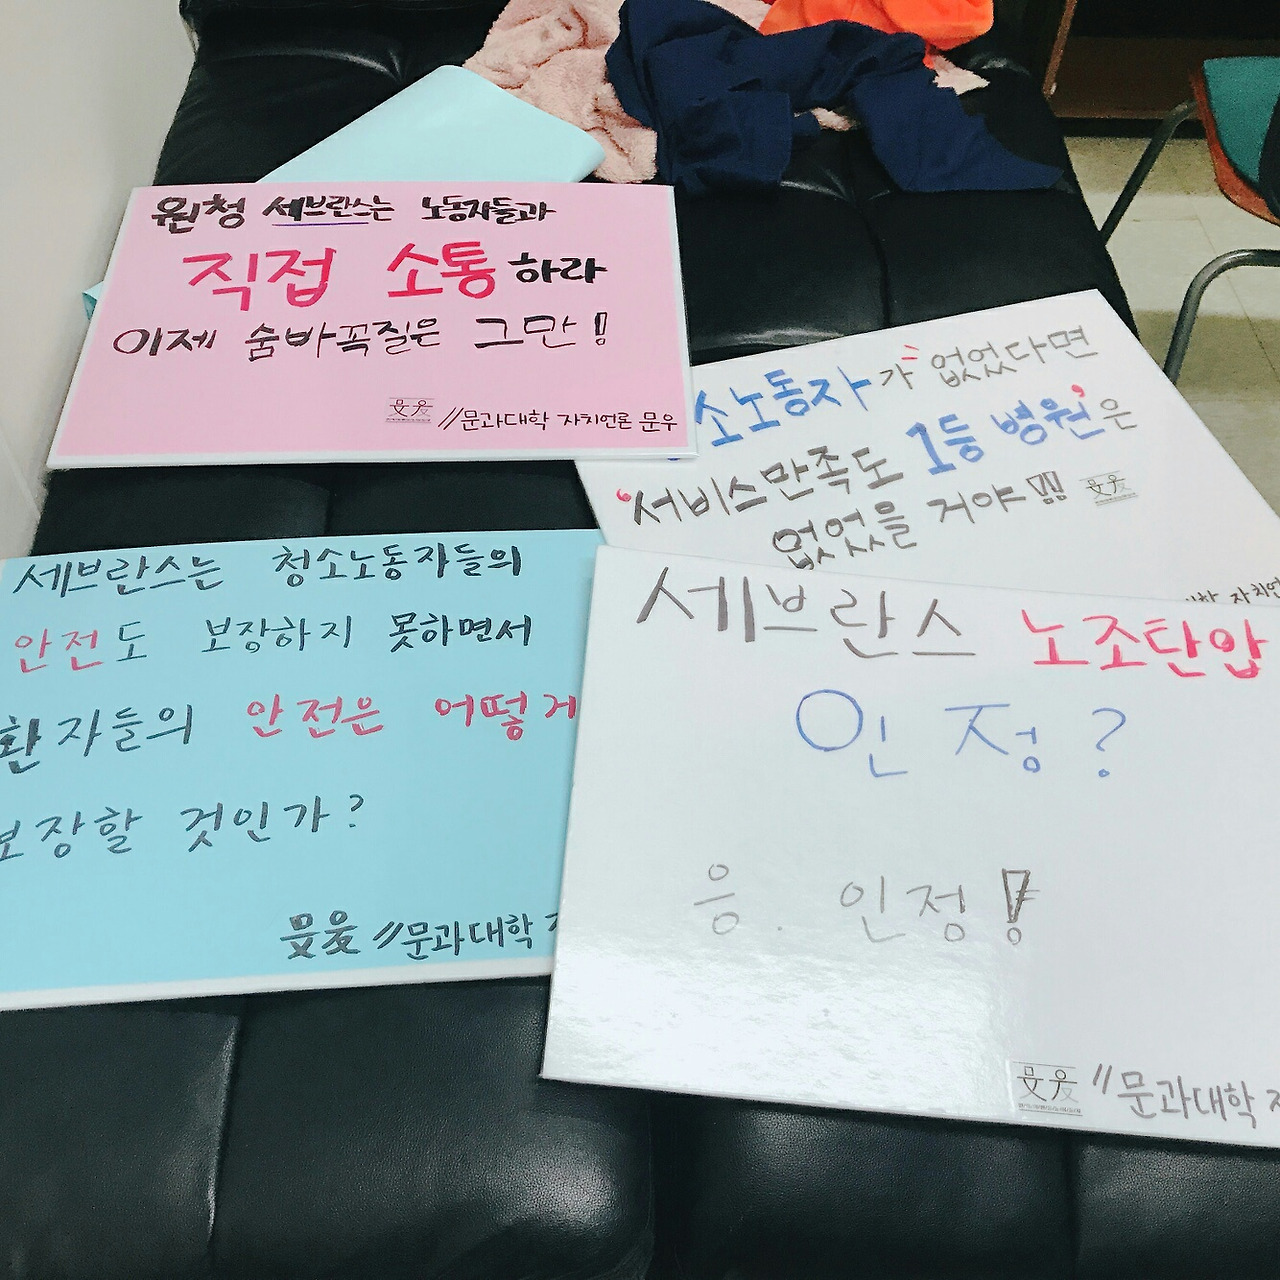 원청 세브란스는 노동자들과
직접 소통하라
이제 숨바꼭질은 그만!
문우 //문과대학 자치언론 문우
소노동자가 없었다면
'서비스만족도 1등 병원'은
없었을 거야!!
문우
자치언
세브란스는 청소노동자들의
안전도 보장하지 못하면서
환자들의 안전은 어떻게
보장할 것인가?
문우 //문과대학
세브란스 노조탄압
인정?
응. 인정!
문우 //문과대학